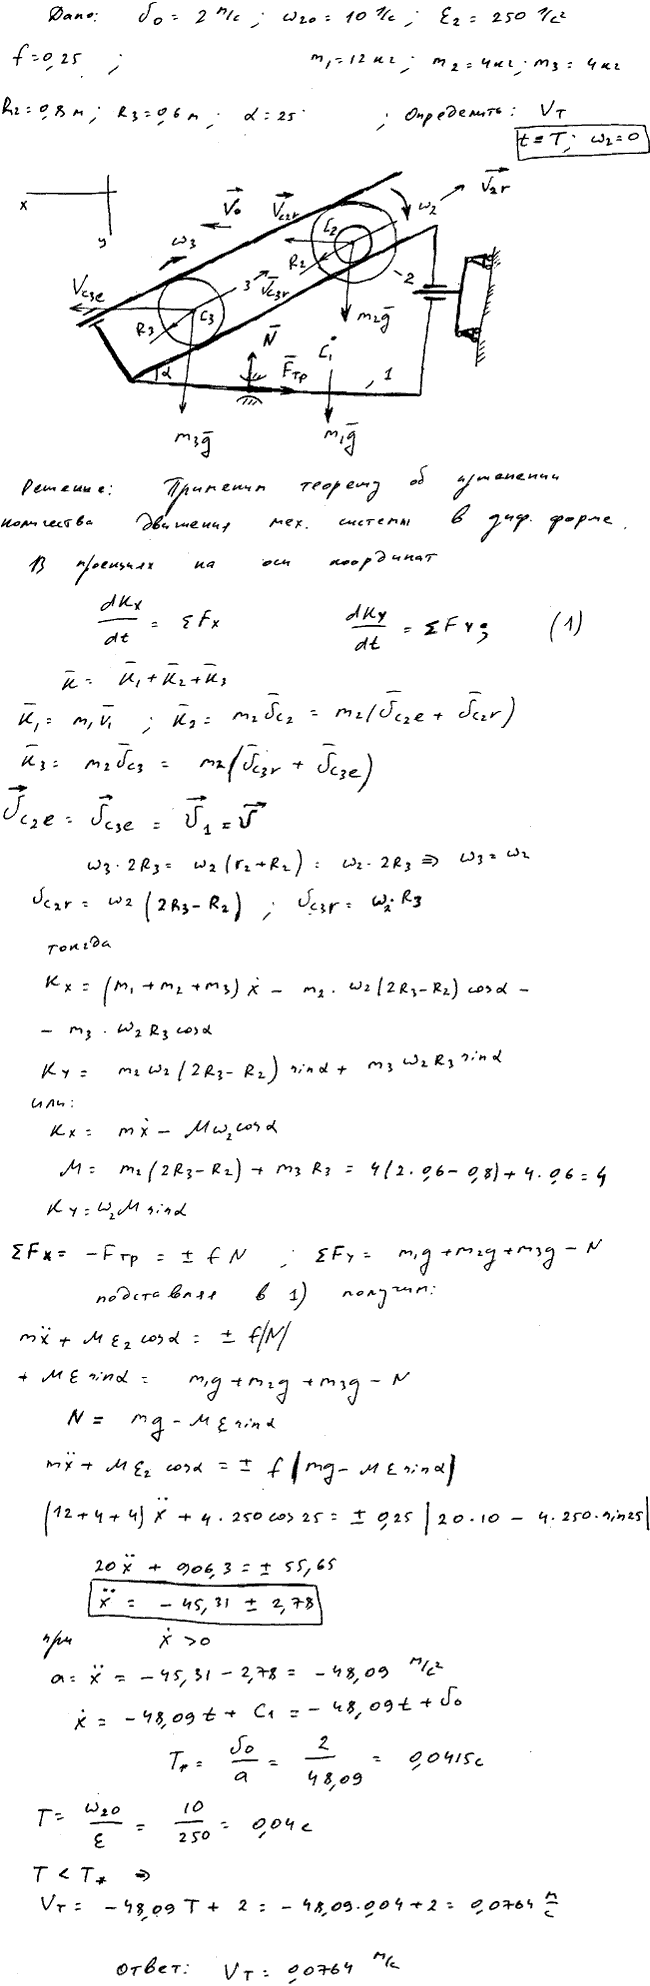 Дано: v₀ = 2 м/с ; ω₂₀ = 10 1/с ; ε₂ = 250 1/с²
f = 0,25 ; m₁ = 12 кг ; m₂ = 4 кг ; m₃ = 4 кг
R₂ = 0,8 м ; R₃ = 0,6 м ; α = 25° ; Определить: V_T
t = T ; ω₂ = 0
x
y
V₀
V_C2r
C₂
ω₂
V_2r
ω₃
R₂
2
V_C3e
3
V_C3r
C₃
R₃
m₂g
N
C₁
α
F_тр
1
m₃g
m₁g
Решение: Применим теорему об изменении
количества движения мех. системы в диф. форме.
В проекциях на оси координат
dK_x/dt = ΣF_x dK_y/dt = ΣF_y ; (1)
K̄ = K̄₁ + K̄₂ + K̄₃
K̄₁ = m₁V̄₁ ; K̄₂ = m₂v̄_C2 = m₂(v̄_C2e + v̄_C2r)
K̄₃ = m₂v̄_C3 = m₂(v̄_C3r + v̄_C3e)
v_C2e = v_C3e = v₁ = v
ω₃·2R₃ = ω₂(r₂ + R₂) = ω₂·2R₃ ⇒ ω₃ = ω₂
v_C2r = ω₂(2R₃ − R₂) ; v_C3r = ω₂·R₃
тогда
K_x = (m₁ + m₂ + m₃)ẋ − m₂·ω₂(2R₃ − R₂) cosα −
− m₃·ω₂R₃ cosα
K_y = m₂ω₂(2R₃ − R₂) sinα + m₃ω₂R₃ sinα
или:
K_x = mẋ − Mω₂cosα
M = m₂(2R₃ − R₂) + m₃R₃ = 4(2·0,6 − 0,8) + 4·0,6 = 4
K_y = ω₂M sinα
ΣF_x = −F_тр = ± fN ; ΣF_y = m₁g + m₂g + m₃g − N
подставляя в 1) получим:
mẍ + Mε₂ cosα = ± f|N|
+ Mε sinα = m₁g + m₂g + m₃g − N
N = mg − Mε sinα
mẍ + Mε₂ cosα = ± f|mg − Mε sinα|
(12 + 4 + 4)ẍ + 4·250 cos 25 = ± 0,25 |20·10 − 4·250·sin25|
20ẍ + 906,3 = ± 55,65
ẍ = − 45,31 ± 2,78
при ẋ > 0
a = ẍ = −45,31 − 2,78 = −48,09 м/с²
ẋ = −48,09t + C₁ = −48,09t + v₀
T_* = v₀/a = 2/48,09 = 0,0415 с
T = ω₂₀/ε = 10/250 = 0,04 с
T < T_* ⇒
V_T = −48,09T + 2 = −48,09·0,04 + 2 = 0,0764 м/с
ответ: V_T = 0,0764 м/с